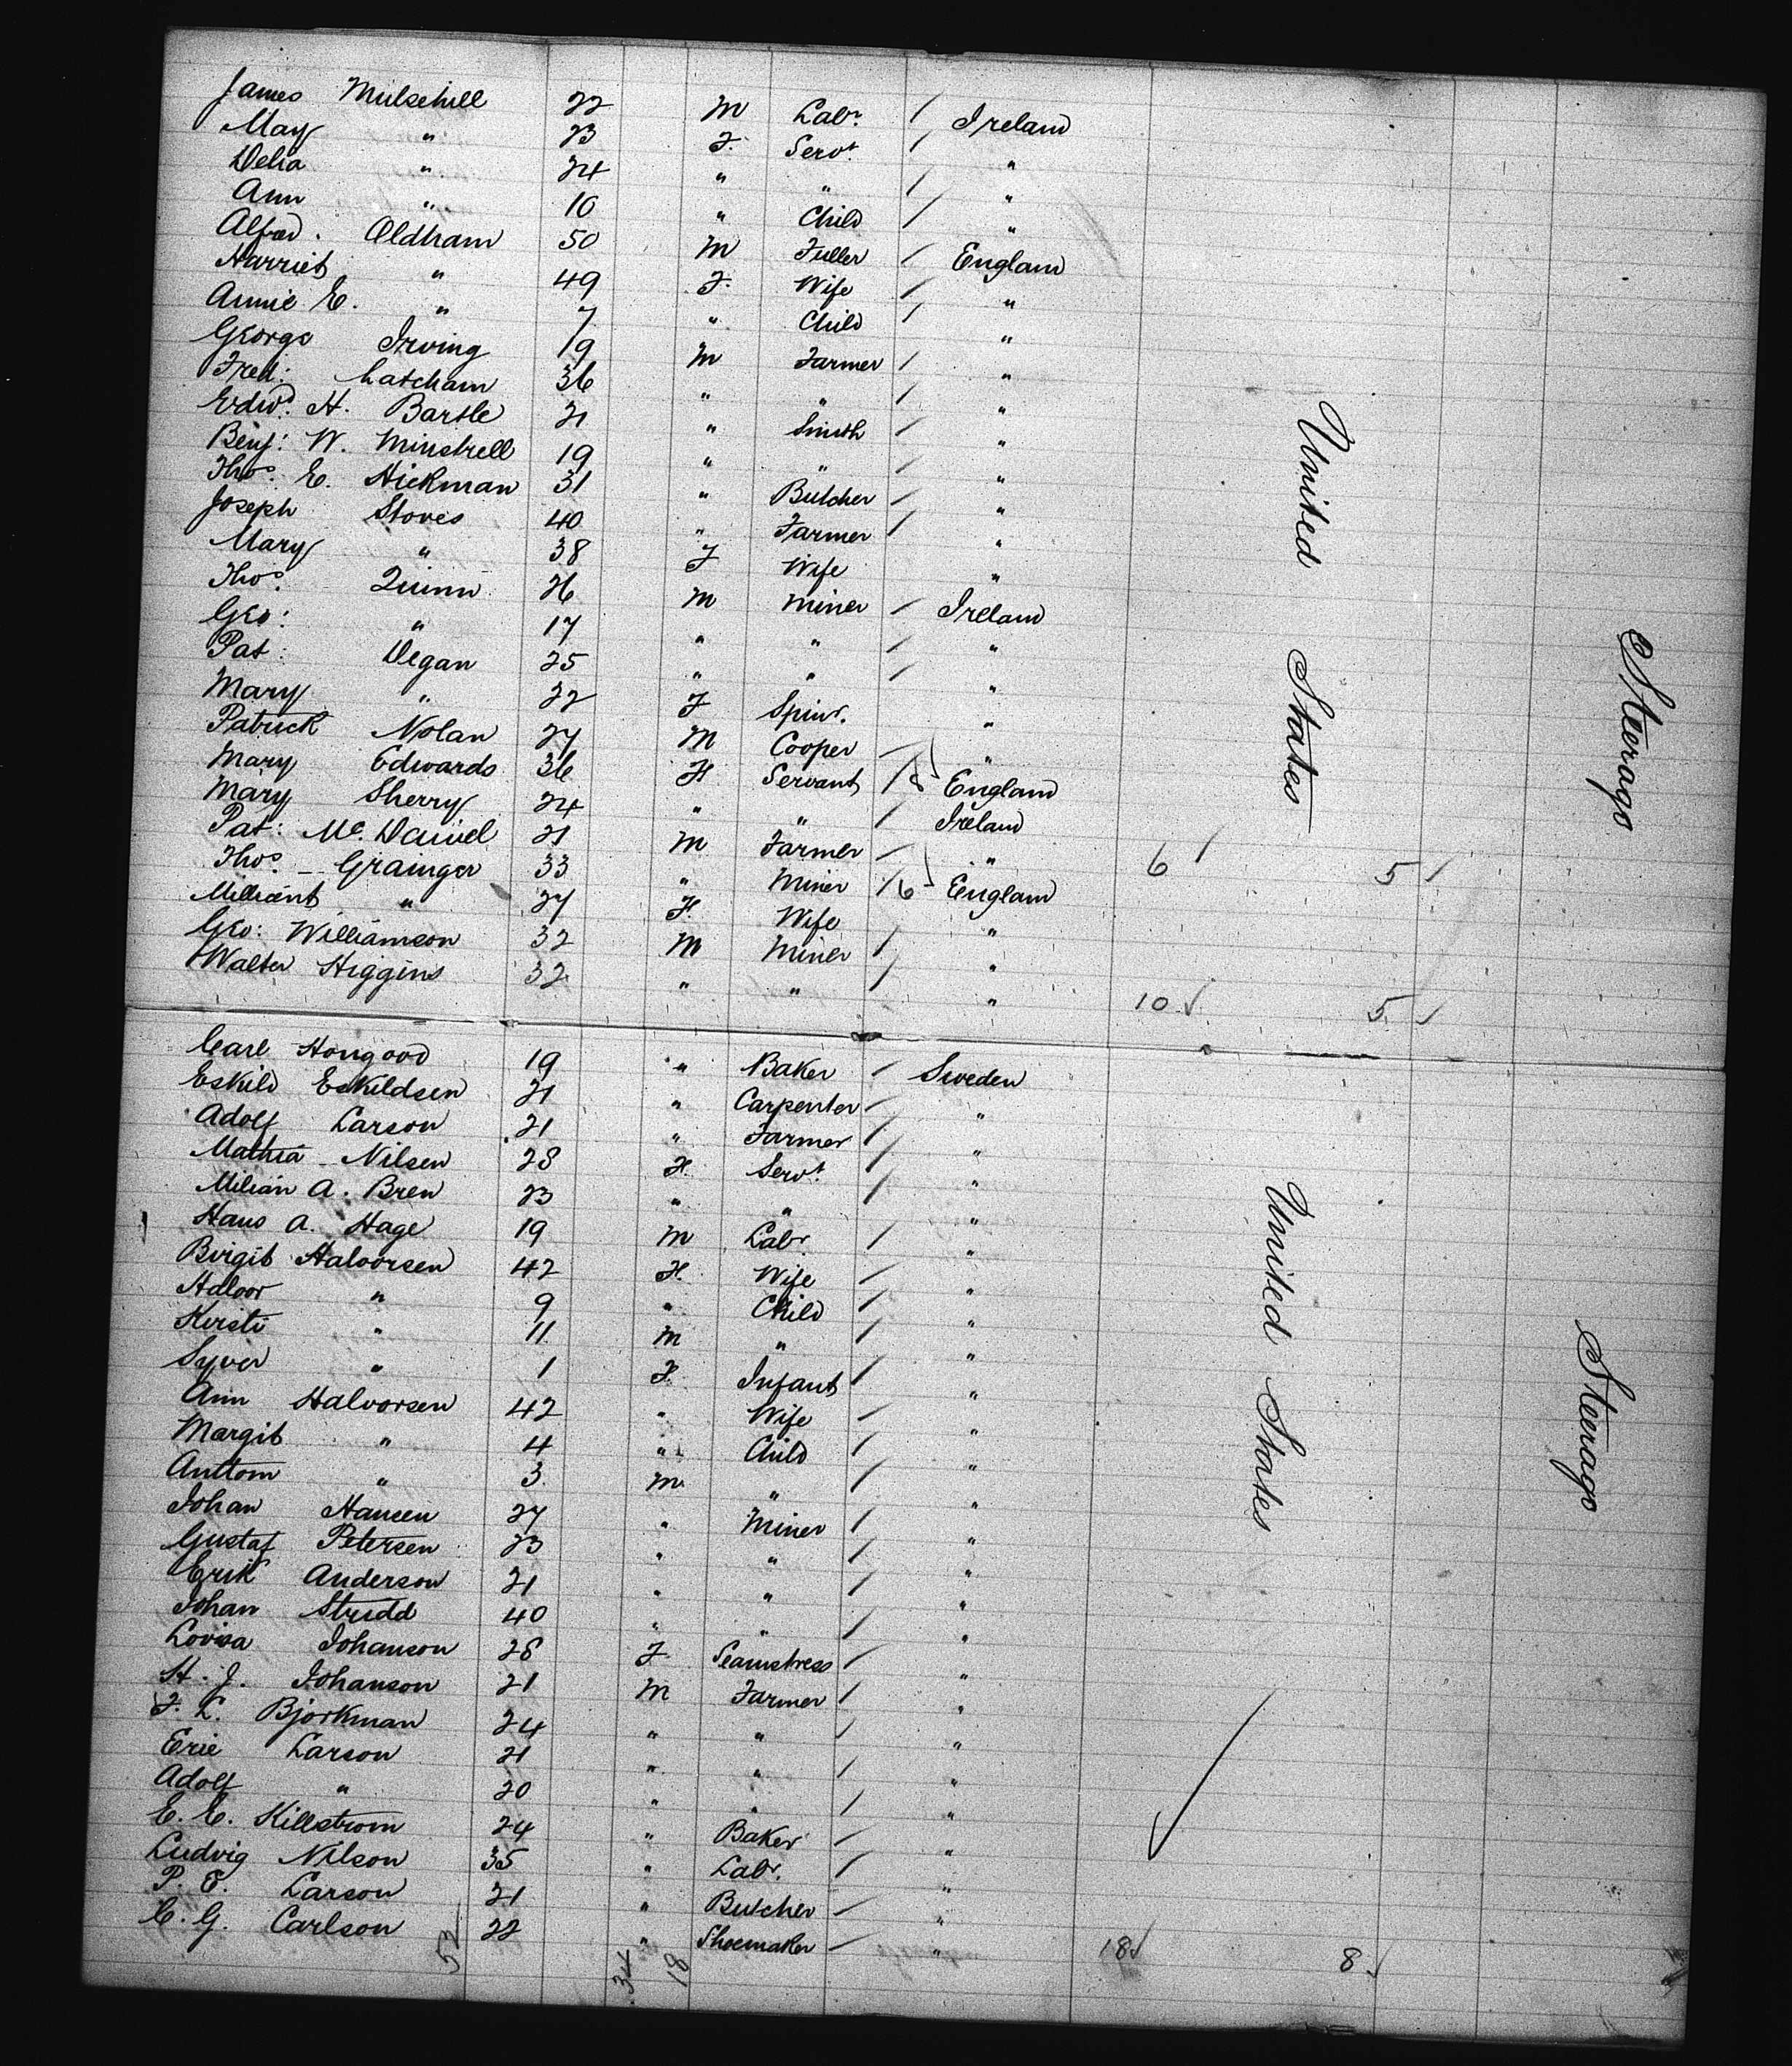 James Mulsehill 22 M Labr. / Ireland
May " 23 F. Servt. / "
Delia " 24 " " / "
Ann " 10 " Child / "
Alfred. Oldham 50 M Fuller / England
Harriet " 49 F. Wife / "
Annie E. " 7 " Child / "
George Irving 19 M Farmer / "
Fred: Latcham 36 " " / "
Edwd. H. Bartle 21 " Smith / "
Benj: W. Minstrell 19 " " / "
Thos. E. Hickman 31 " Butcher / "
Joseph Stoves 40 " Farmer / "
Mary " 38 F Wife "
Thos. Quinn 26 M Miner / Ireland
Geo: " 17 " " / "
Pat: Degan 25 " " / "
Mary " 22 F Spinr. "
Patrick Nolan 27 M Cooper / "
Mary Edwards 36 F Servant / England
Mary Sherry 24 " " / Ireland
Pat: Mc. Daniel 21 M Farmer / " 6 / 5 /
Thos. Grainger 33 " Miner / 6 England
Millicent " 27 F. Wife "
Geo: Williamson 32 M Miner / "
Walter Higgins 32 " " / " 10 ✓ 5 ✓
United States
Steerage
Carl Hongood 19 " Baker / Sweden
Eskild Eskildsen 21 " Carpenter / "
Adolf Larson 21 " Farmer / "
Mathia Nilsen 28 F. Servt. / "
Milian A. Bren 23 " " / "
Hans A. Hage 19 M Labr. / "
Birgit Halvorsen 42 F. Wife / "
Halvor " 9 " Child / "
Kirsti " 11 M " / "
Syver " 1 F. Infant / "
Ann Halvorsen 42 " Wife / "
Margit " 4 " Child / "
Anttom " 3 M " / "
Johan Hansen 27 " Miner / "
Gustaf Petersen 23 " " / "
Erik Anderson 21 " " / "
Johan Strudd 40 " " / "
Lovisa Johanson 28 F. Seamstress / "
H. J. Johanson 21 M Farmer / "
F. L. Bjorkman 24 " " / "
Eric Larson 21 " " / "
Adolf " 20 " " / "
E. E. Killstrom 24 " Baker / "
Ludvig Nilson 35 " Labr. / "
P. E. Larson 21 " Butcher / "
C. G. Carlson 22 " Shoemaker / " 18 ✓ 8 ✓
United States
Steerage
52 34 18